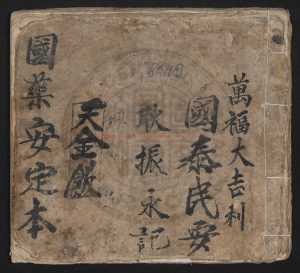 萬福大吉利
國泰民安
耿振永記
天金敏
國藥安定本